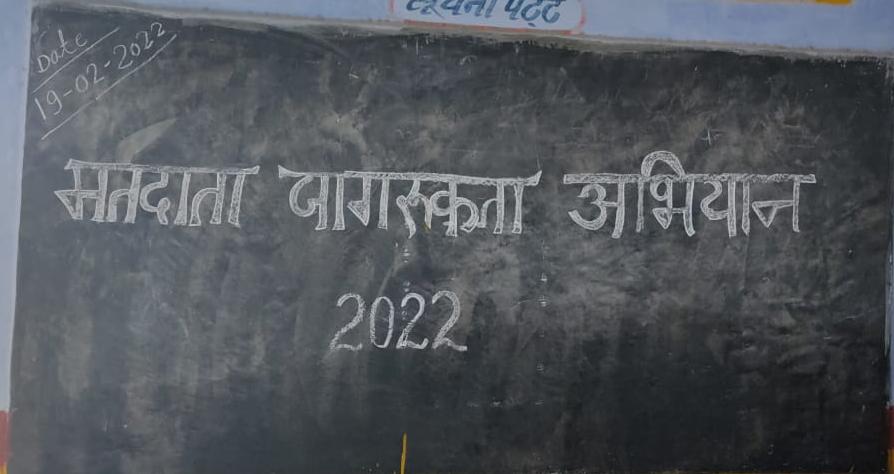 सूचना पट्ट
Date
19-02-2022
मतदाता जागरुकता अभियान
2022